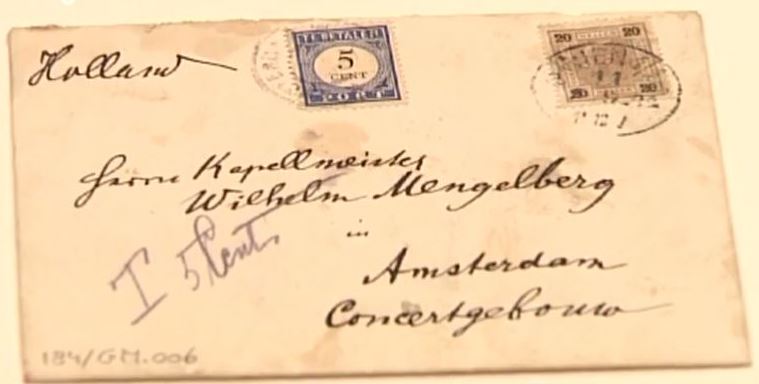 Holland
TE BETALEN
5
CENT
PORT
20 HELLER 20
20 20
Herrn Kapellmeister
Wilhelm Mengelberg
in
Amsterdam
Concertgebouw
T 5 Cent
184/GM.006